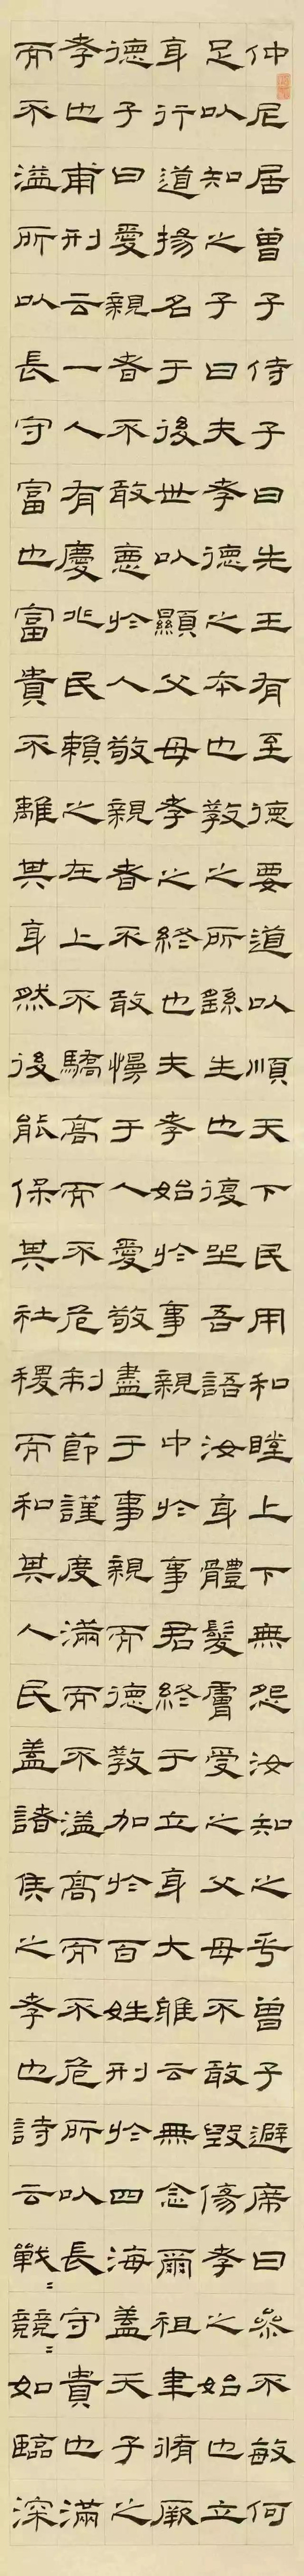 仲尼居曾子侍子曰先王有至德要道以順天下民用和睦上下無怨汝知之乎曾子避席曰參不敏何
足以知之子曰夫孝德之本也教之所繇生也復坐吾語汝身體髮膚受之父母不敢毀傷孝之始也立
身行道揚名于後世以顯父母孝之終也夫孝始於事親中於事君終于立身大雅云無念爾祖聿脩厥
德子曰愛親者不敢惡於人敬親者不敢慢于人愛敬盡于事親而德教加於百姓刑於四海蓋天子之
孝也甫刑云一人有慶兆民賴之在上不驕高而不危制節謹度滿而不溢高而不危所以長守貴也滿
而不溢所以長守富也富貴不離其身然後能保其社稷而和其人民蓋諸侯之孝也詩云戰〻兢〻如臨深